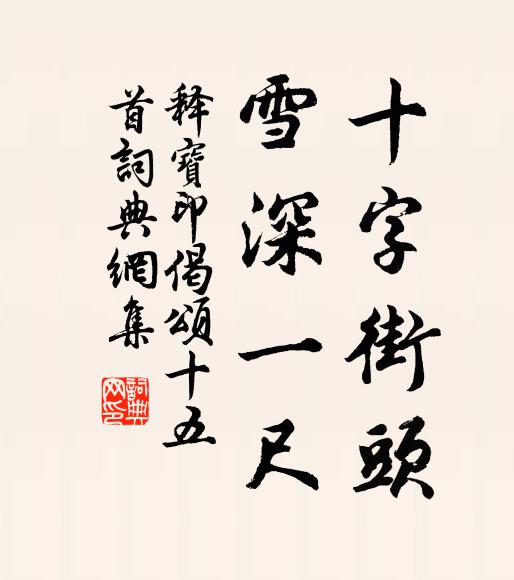 十字街頭
雪深一尺
释寶印偈頌十五
首詞典網集
詞典
网印